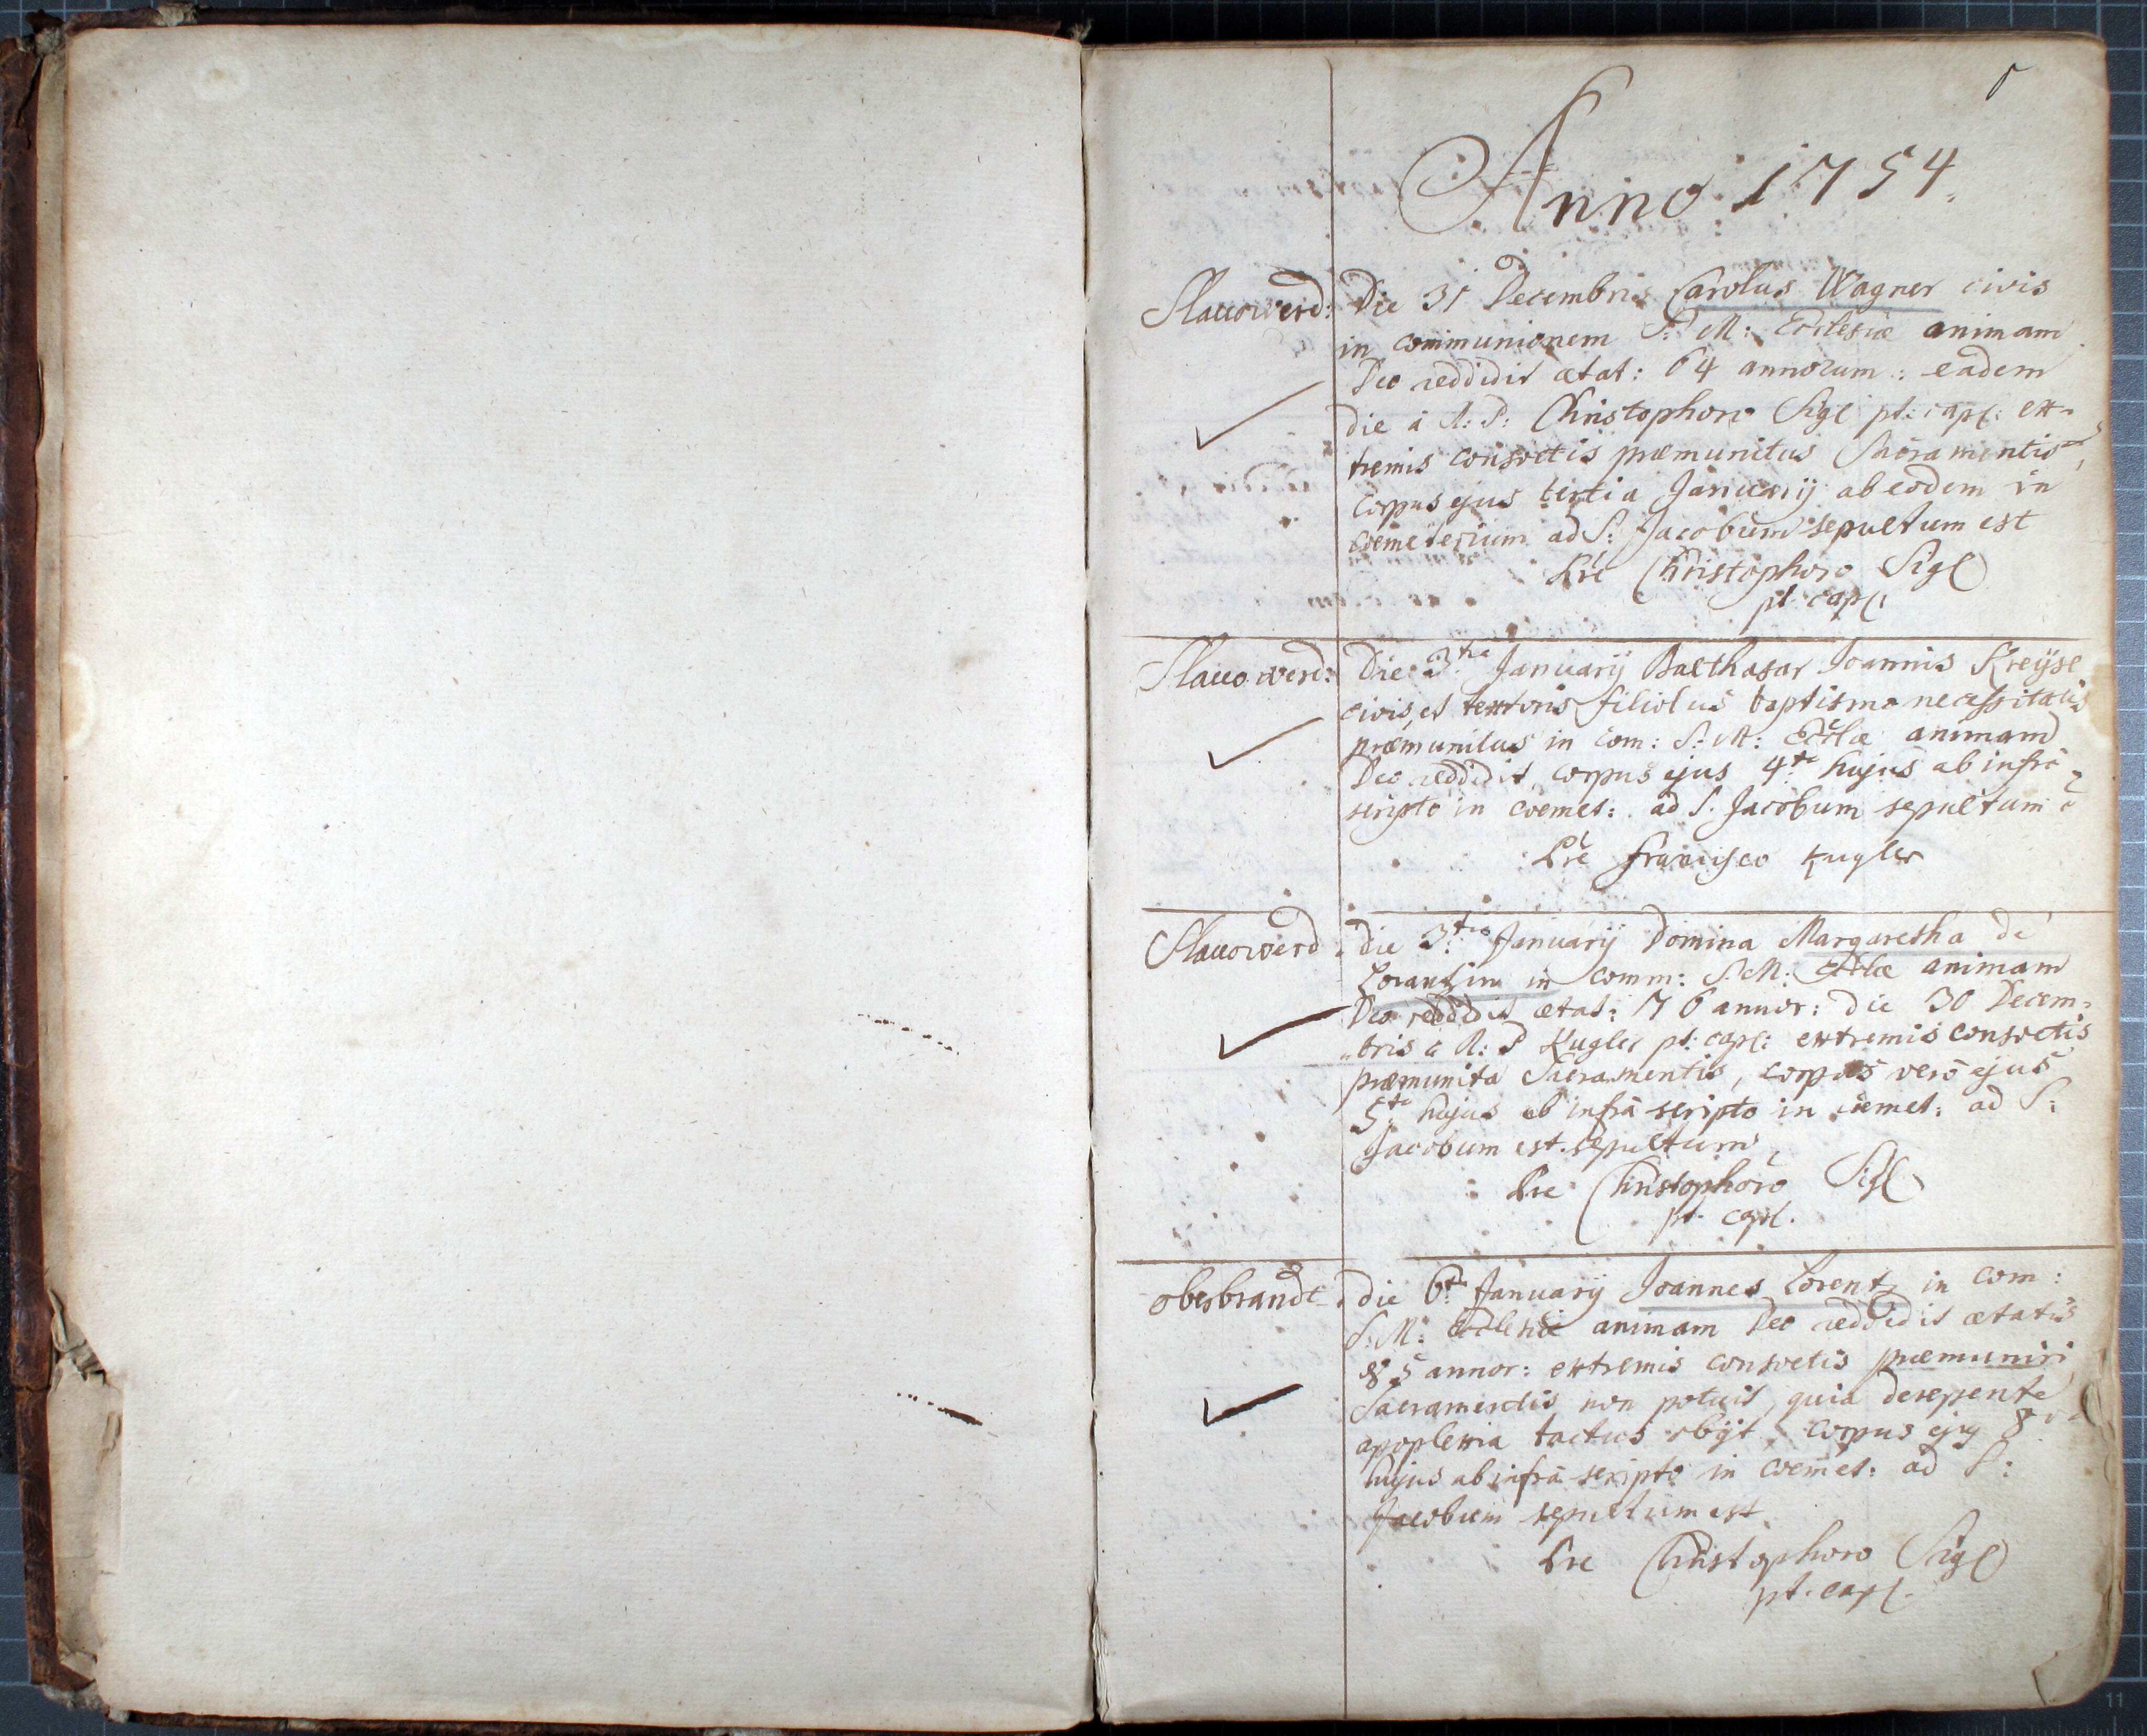 Anno 1754.
Slacowerd:
Die 31 Decembris Carolus Wagner civis
in communionem S: M: Ecclesiæ animam
Deo reddidit ætat: 64 annorum: eadem
die à R: P: Christophoro Sigl pt: capl: ex-
tremis consvetis præmunitus Sacramentis,
corpus ejus tertia Januarij ab eodem in
coemeterium ad S: Jacobum sepultum est
Pre Christophoro Sigl
pt. capl:
Slacowerd:
Die 3tia Januarij Balthasar Joannis Kreysl
civis, et textoris filiolus baptismo necessitatis
præmunitus in com: S: M: Ecclæ animam
Deo reddidit, corpus ejus 4ta hujus ab infra
scripto in coemet: ad S. Jacobum sepultum ē
Pre Francisco Kugler
Slacowerd
die 3tia Januarij Domina Margaretha de
in comm: S: M: Ecclæ animam
Deo reddidit ætat: 76 annor: die 30 Decem-
bris à R: P Kugler pt: capl: extremis consvetis
præmunita Sacramentis, corpus verò ejus
5ta hujus ab infrà scripto in coemet: ad S:
Jacobum est sepultum,
Pre Christophoro Sigl
pt. capl.
Oberbrandt
die 6ta Januarij Joannes Lorentz in com:
S: M: Ecclesiæ animam Deo reddidit ætatis
85 annor: extremis consvetis præmuniri
Sacramentis non potuit, quia derepente
apoplexia tactus obijt, corpus ejus 8va
hujus ab infrà scripto in coemet: ad S:
Jacobum sepultum est.
Pre Christophoro Sigl
pt. capl.
11